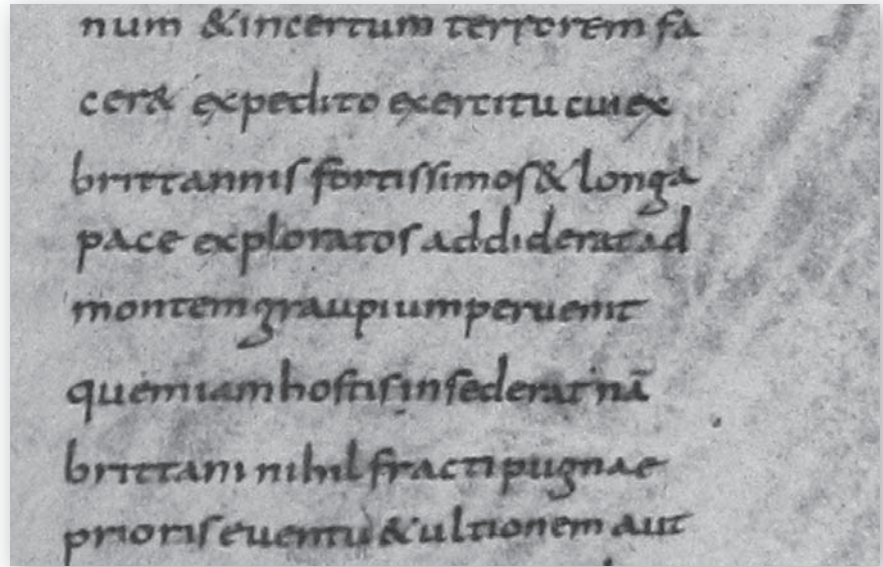 num & incertum terrorem fa
cer& expedito exercitu cui ex
brittannis fortissimos & longa
pace exploratos addiderat ad
montem graupium peruenit
quem iam hostis insederat nā
brittani nihil fracti pugnae
prioris euentu & ultionem aut